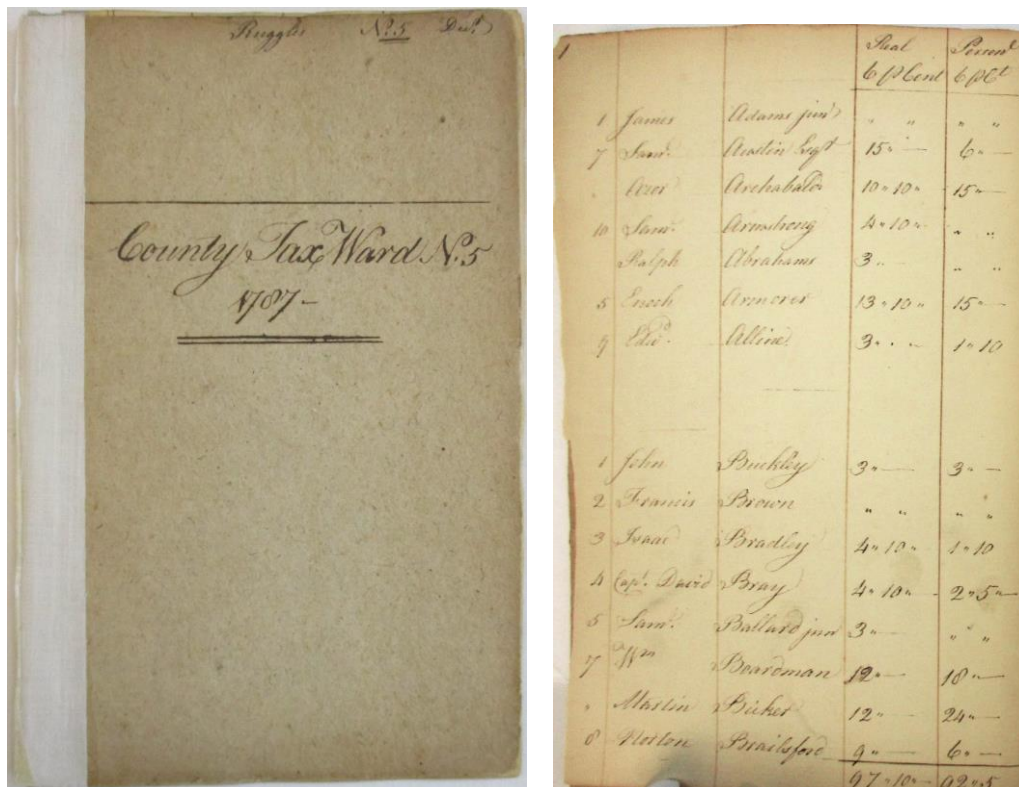 Ruggles No. 5 Dup.t
County Tax Ward No. 5
1787 -
1 Real Person.l
6 p Cent 6 p Ct
1 James Adams jun.r " " " "
7 Sam.l Austin Esq.r 15 " — 6 " —
" Azor Archabald 10 " 10 " 15 " —
10 Sam.l Armstrong 4 " 10 " " "
Ralph Abrahams 3 " " "
5 Enoch Armorer 13 " 10 " 15 " —
9 Edw.d Alline 3 " " — 1 " 10
1 John Buckley 3 " — 3 " —
2 Francis Brown " " " "
3 Isaac Bradley 4 " 10 " 1 " 10
4 Cap.t David Bray 4 " 10 " — 2 " 5 " —
5 Sam.l Ballard jun 3 " — " "
7 W.m Boardman 12 " — 18 " —
" Martin Bicker 12 " — 24 " —
8 Norton Brailsford 9 " — 6 " —
97 " 10 " — 92 " 5